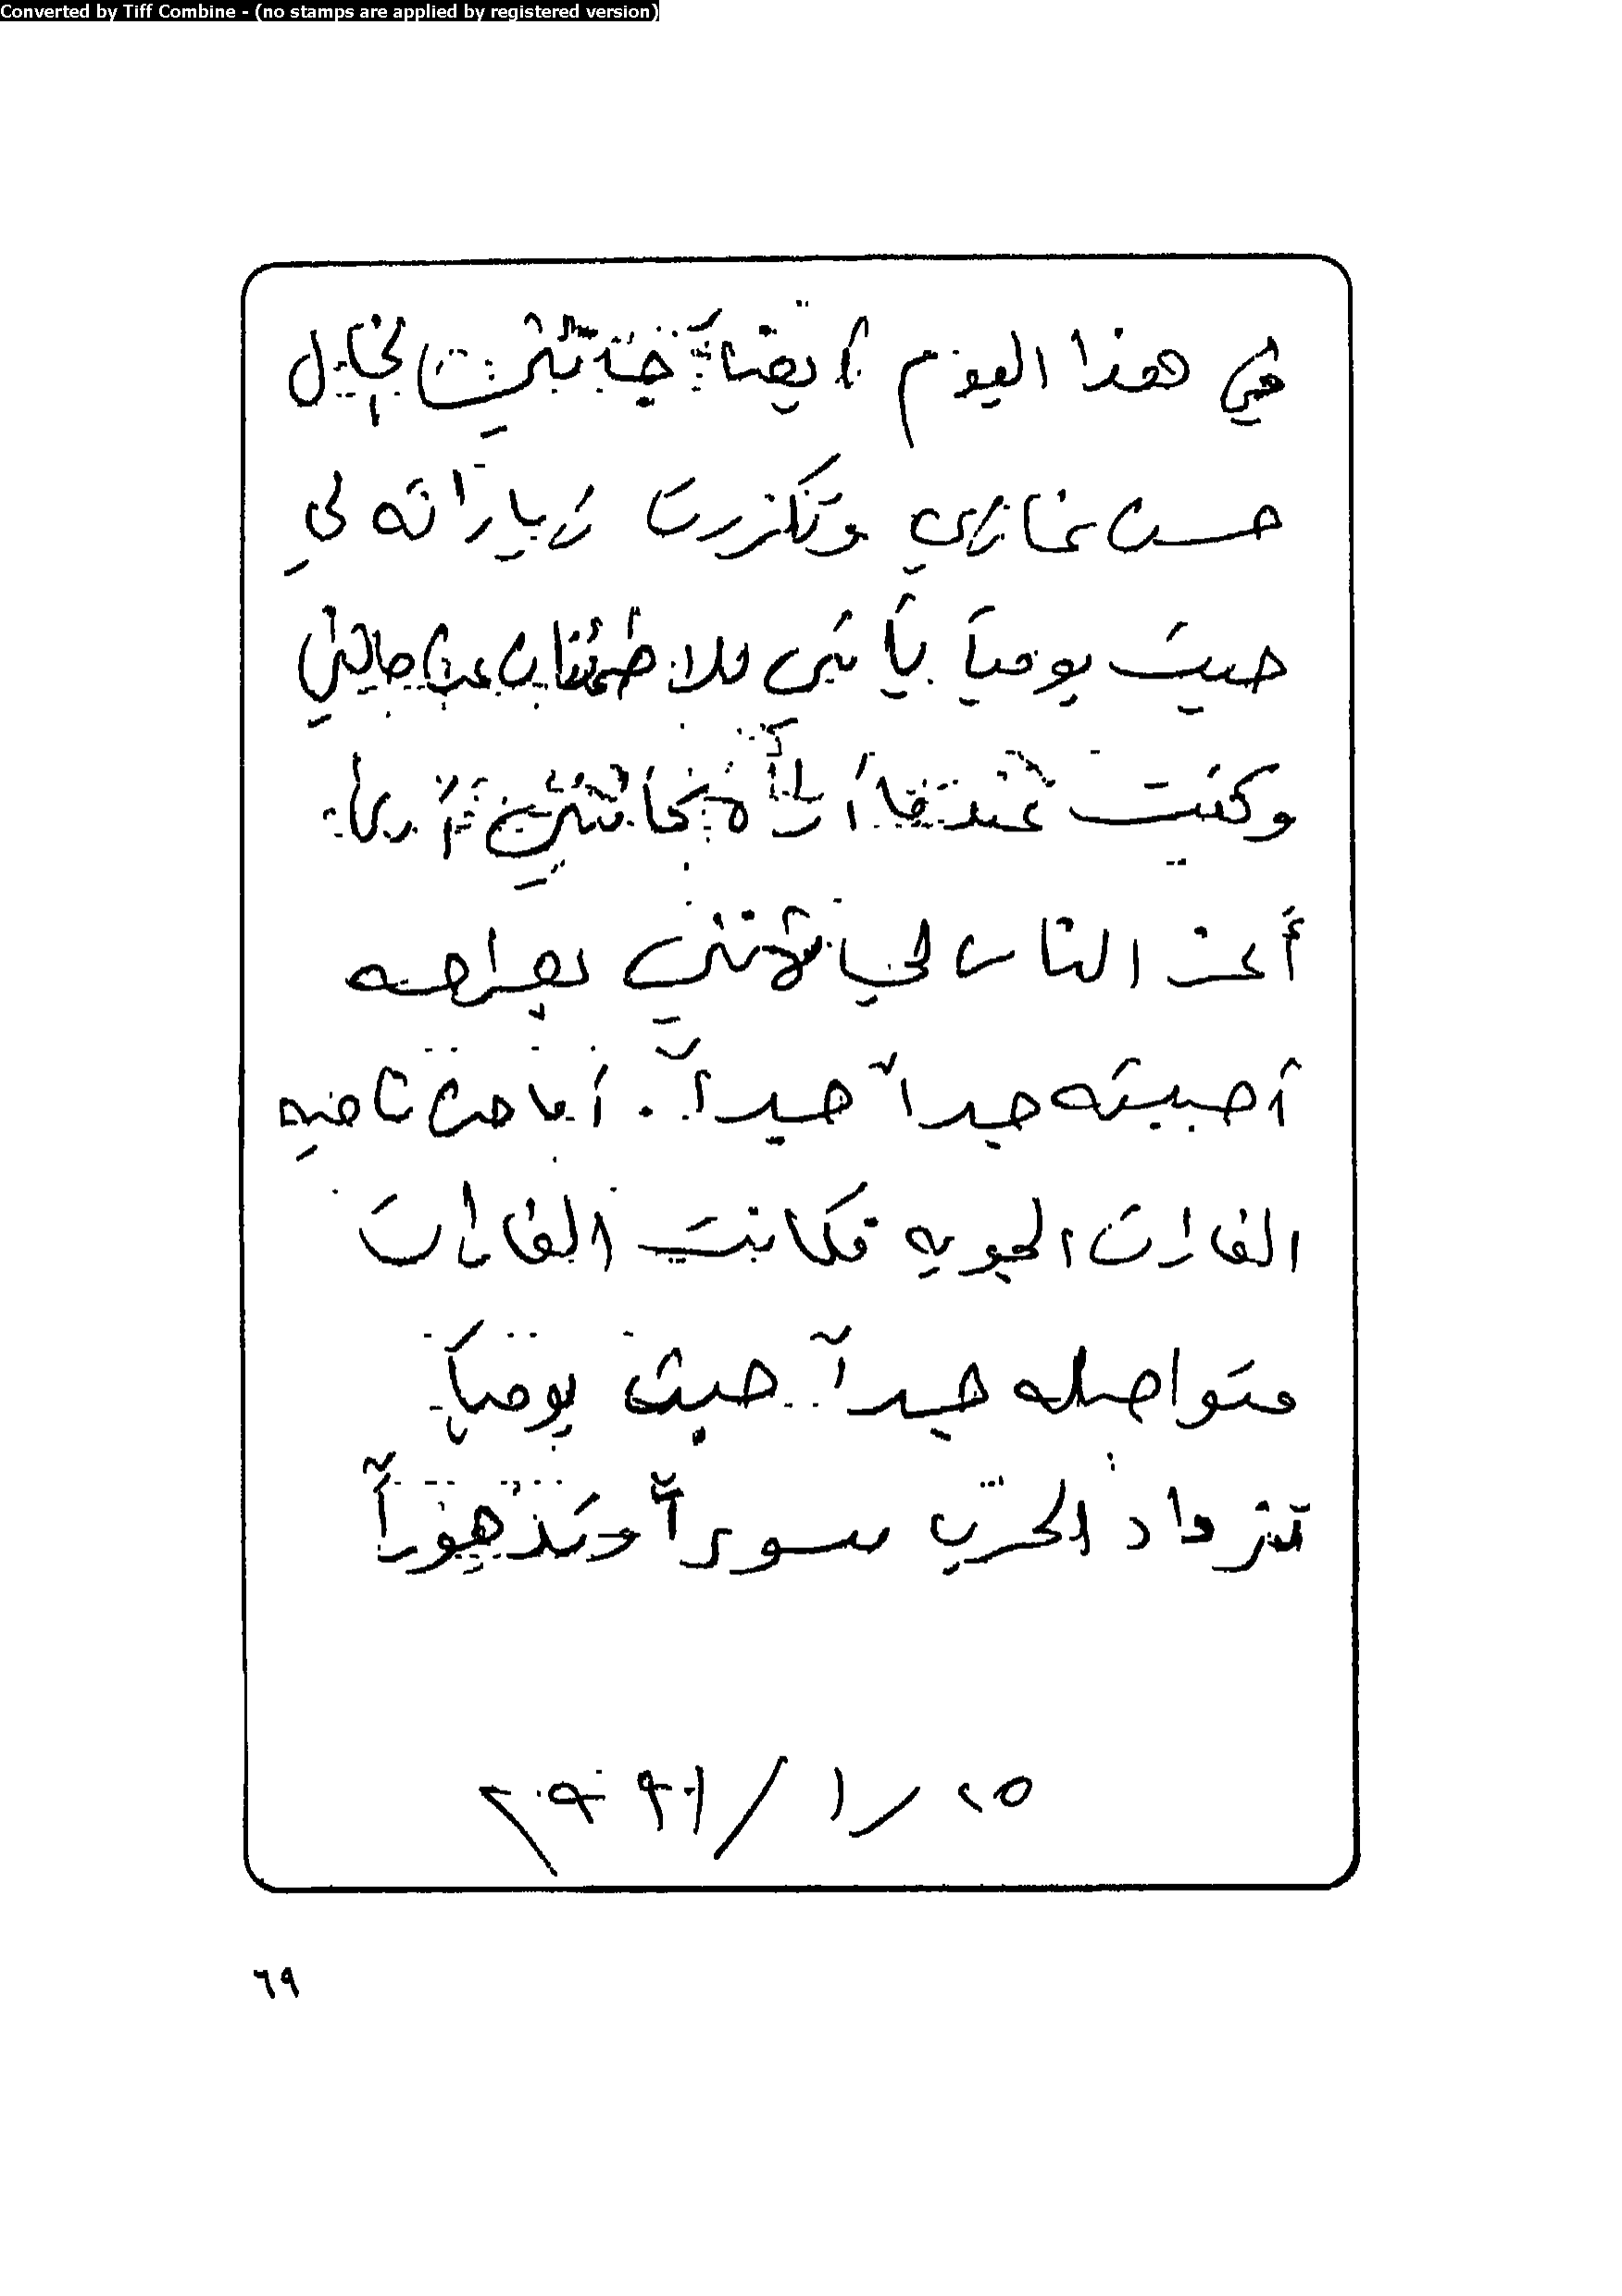 Converted by Tiff Combine - (no stamps are applied by registered version)
في هذا اليوم أيضاً
حسن وتكررت زياراته لي
حيث يومياً يأتي للاطمئنان عن حالتي
وكنت عندما أراه كأنني أرى
أعز الناس لي لأنني بصراحه
أحببته جداً جداً . أما من ناحيه
الغارات الجويه فكانت الغارات
متواصله جداً حيث يومياً
تزداد الحرب سوءاً وتدهوراً
٦٩